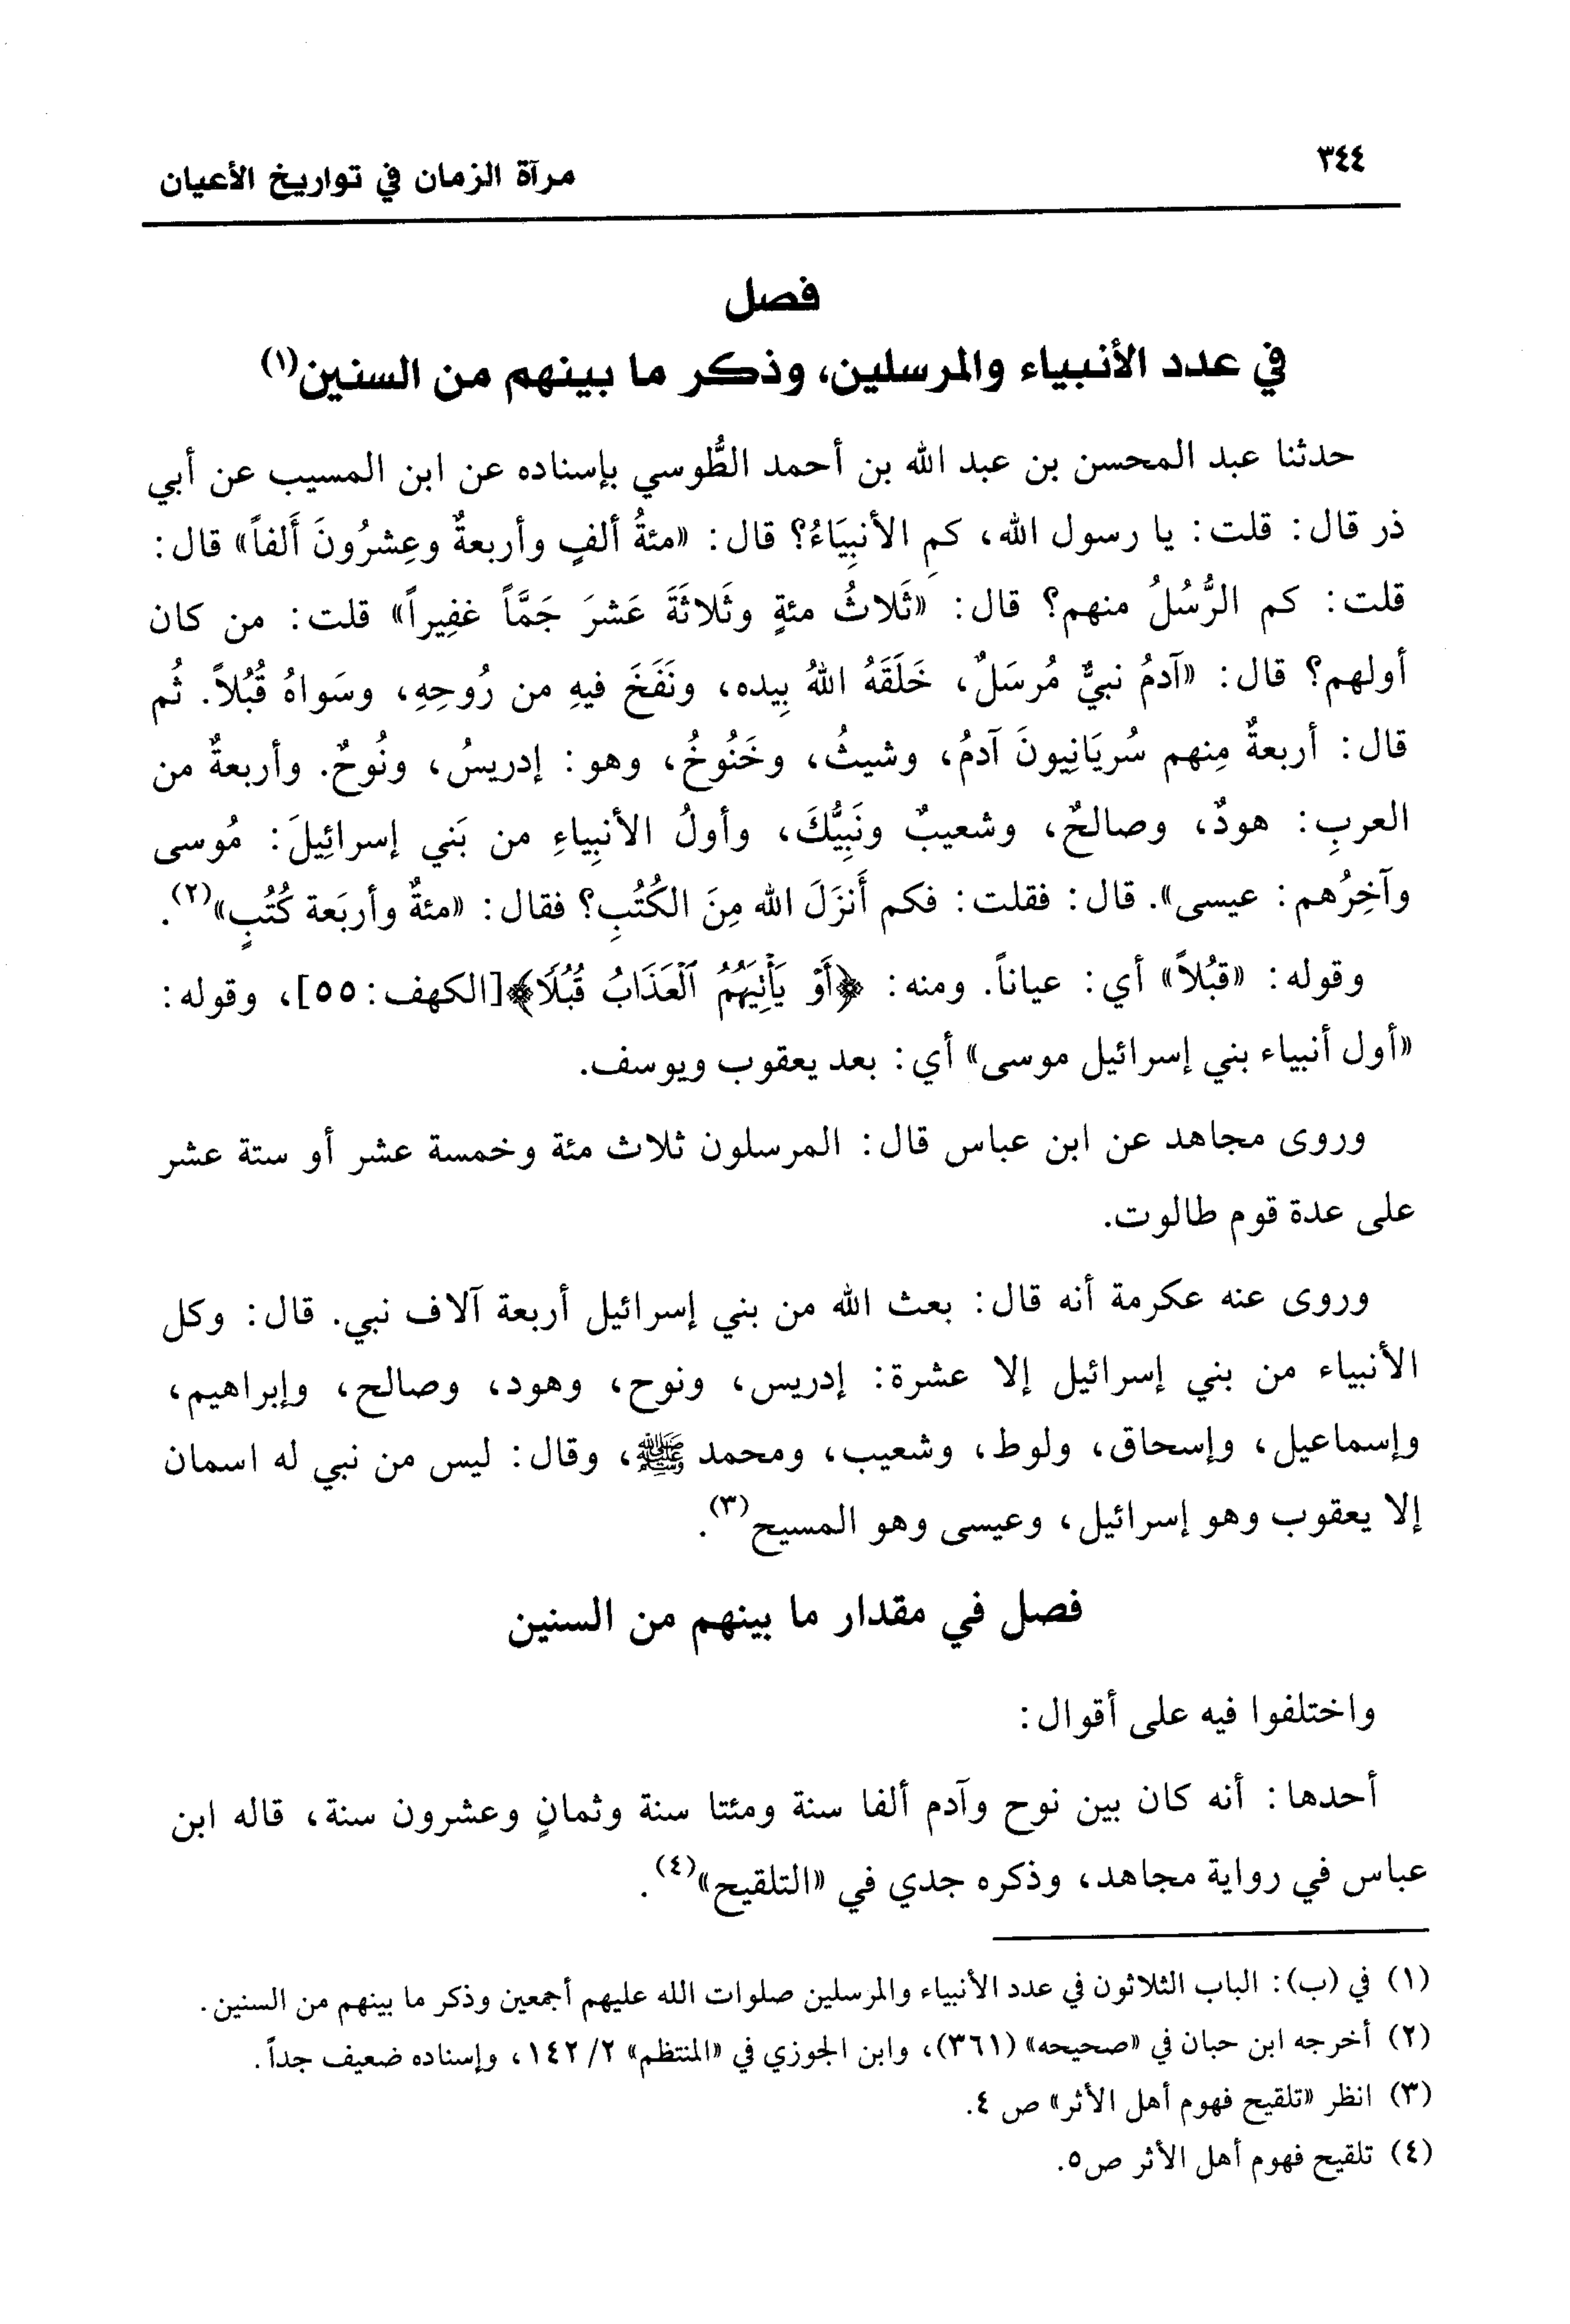 ٣٤٤
مرآة الزمان في تواريخ الأعيان
فصل
في عدد الأنبياء والمرسلين، وذكر ما بينهم من السنين(١)
حدثنا عبد المحسن بن عبد الله بن أحمد الطُّوسي بإسناده عن ابن المسيب عن أبي
ذر قال: قلت: يا رسول الله، كمِ الأنبِيَاءُ؟ قال: «مئةُ ألفٍ وأربعةٌ وعِشرُونَ أَلفاً» قال:
قلت: كم الرُّسُلُ منهم؟ قال: «ثَلاثُ مئةٍ وثَلاثَةَ عَشرَ جَمَّاً غفِيراً» قلت: من كان
أولهم؟ قال: «آدمُ نبيٌّ مُرسَلٌ، خَلَقَهُ اللهُ بِيده، ونَفَخَ فيهِ من رُوحِهِ، وسَواهُ قُبُلاً. ثُم
قال: أربعةٌ مِنهم سُريَانِيونَ آدمُ، وشيثُ، وخَنُوخُ، وهو: إدريسُ، ونُوحٌ. وأربعةٌ من
العربِ: هودٌ، وصالحٌ، وشعيبٌ ونَبِيُّكَ، وأولُ الأنبِياءِ من بَني إسرائِيلَ: مُوسى
وآخِرُهم: عيسى». قال: فقلت: فكم أَنزَلَ الله مِنَ الكُتُبِ؟ فقال: «مئةٌ وأربَعة كُتُبٍ»(٢).
وقوله: «قبُلاً» أي: عياناً. ومنه: ﴿أَوْ يَأْتِيَهُمُ ٱلْعَذَابُ قُبُلًا﴾[الكهف: ٥٥]، وقوله:
«أول أنبياء بني إسرائيل موسى» أي: بعد يعقوب ويوسف.
وروى مجاهد عن ابن عباس قال: المرسلون ثلاث مئة وخمسة عشر أو ستة عشر
على عدة قوم طالوت.
وروى عنه عكرمة أنه قال: بعث الله من بني إسرائيل أربعة آلاف نبي. قال: وكل
الأنبياء من بني إسرائيل إلا عشرة: إدريس، ونوح، وهود، وصالح، وإبراهيم،
وإسماعيل، وإسحاق، ولوط، وشعيب، ومحمد ﷺ، وقال: ليس من نبي له اسمان
إلا يعقوب وهو إسرائيل، وعيسى وهو المسيح(٣).
فصل في مقدار ما بينهم من السنين
واختلفوا فيه على أقوال:
أحدها: أنه كان بين نوح وآدم ألفا سنة ومئتا سنة وثمانٍ وعشرون سنة، قاله ابن
عباس في رواية مجاهد، وذكره جدي في «التلقيح»(٤).
(١) في (ب): الباب الثلاثون في عدد الأنبياء والمرسلين صلوات الله عليهم أجمعين وذكر ما بينهم من السنين.
(٢) أخرجه ابن حبان في «صحيحه» (٣٦١)، وابن الجوزي في «المنتظم» ٢/ ١٤٢، وإسناده ضعيف جداً.
(٣) انظر «تلقيح فهوم أهل الأثر» ص ٤.
(٤) تلقيح فهوم أهل الأثر ص٥.